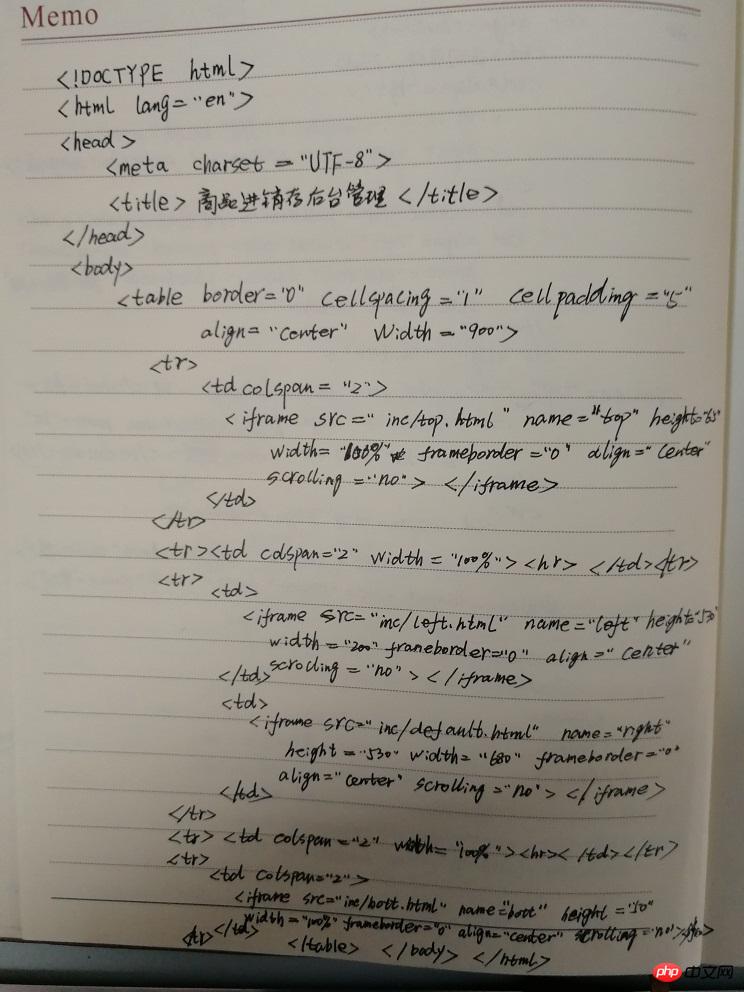 Memo
<!DOCTYPE html>
<html lang="en">
<head>
<meta charset="UTF-8">
<title>商品进销存后台管理</title>
</head>
<body>
<table border="0" cellspacing="1" cellpadding="5"
align="center" width="900">
<tr>
<td colspan="2">
<iframe src="inc/top.html" name="top" height="65"
width="100%" frameborder="0" align="center"
scrolling="no"></iframe>
</td>
</tr>
<tr><td colspan="2" width="100%"><hr></td></tr>
<tr>
<td>
<iframe src="inc/left.html" name="left" height="530"
width="200" frameborder="0" align="center"
scrolling="no"></iframe>
</td>
<td>
<iframe src="inc/default.html" name="right"
height="530" width="680" frameborder="0"
align="center" scrolling="no"></iframe>
</td>
</tr>
<tr><td colspan="2" width="100%"><hr></td></tr>
<tr>
<td colspan="2">
<iframe src="inc/bott.html" name="bott" height="50"
width="100%" frameborder="0" align="center" scrolling="no">
</td>
</table> </body> </html>
php 中文网